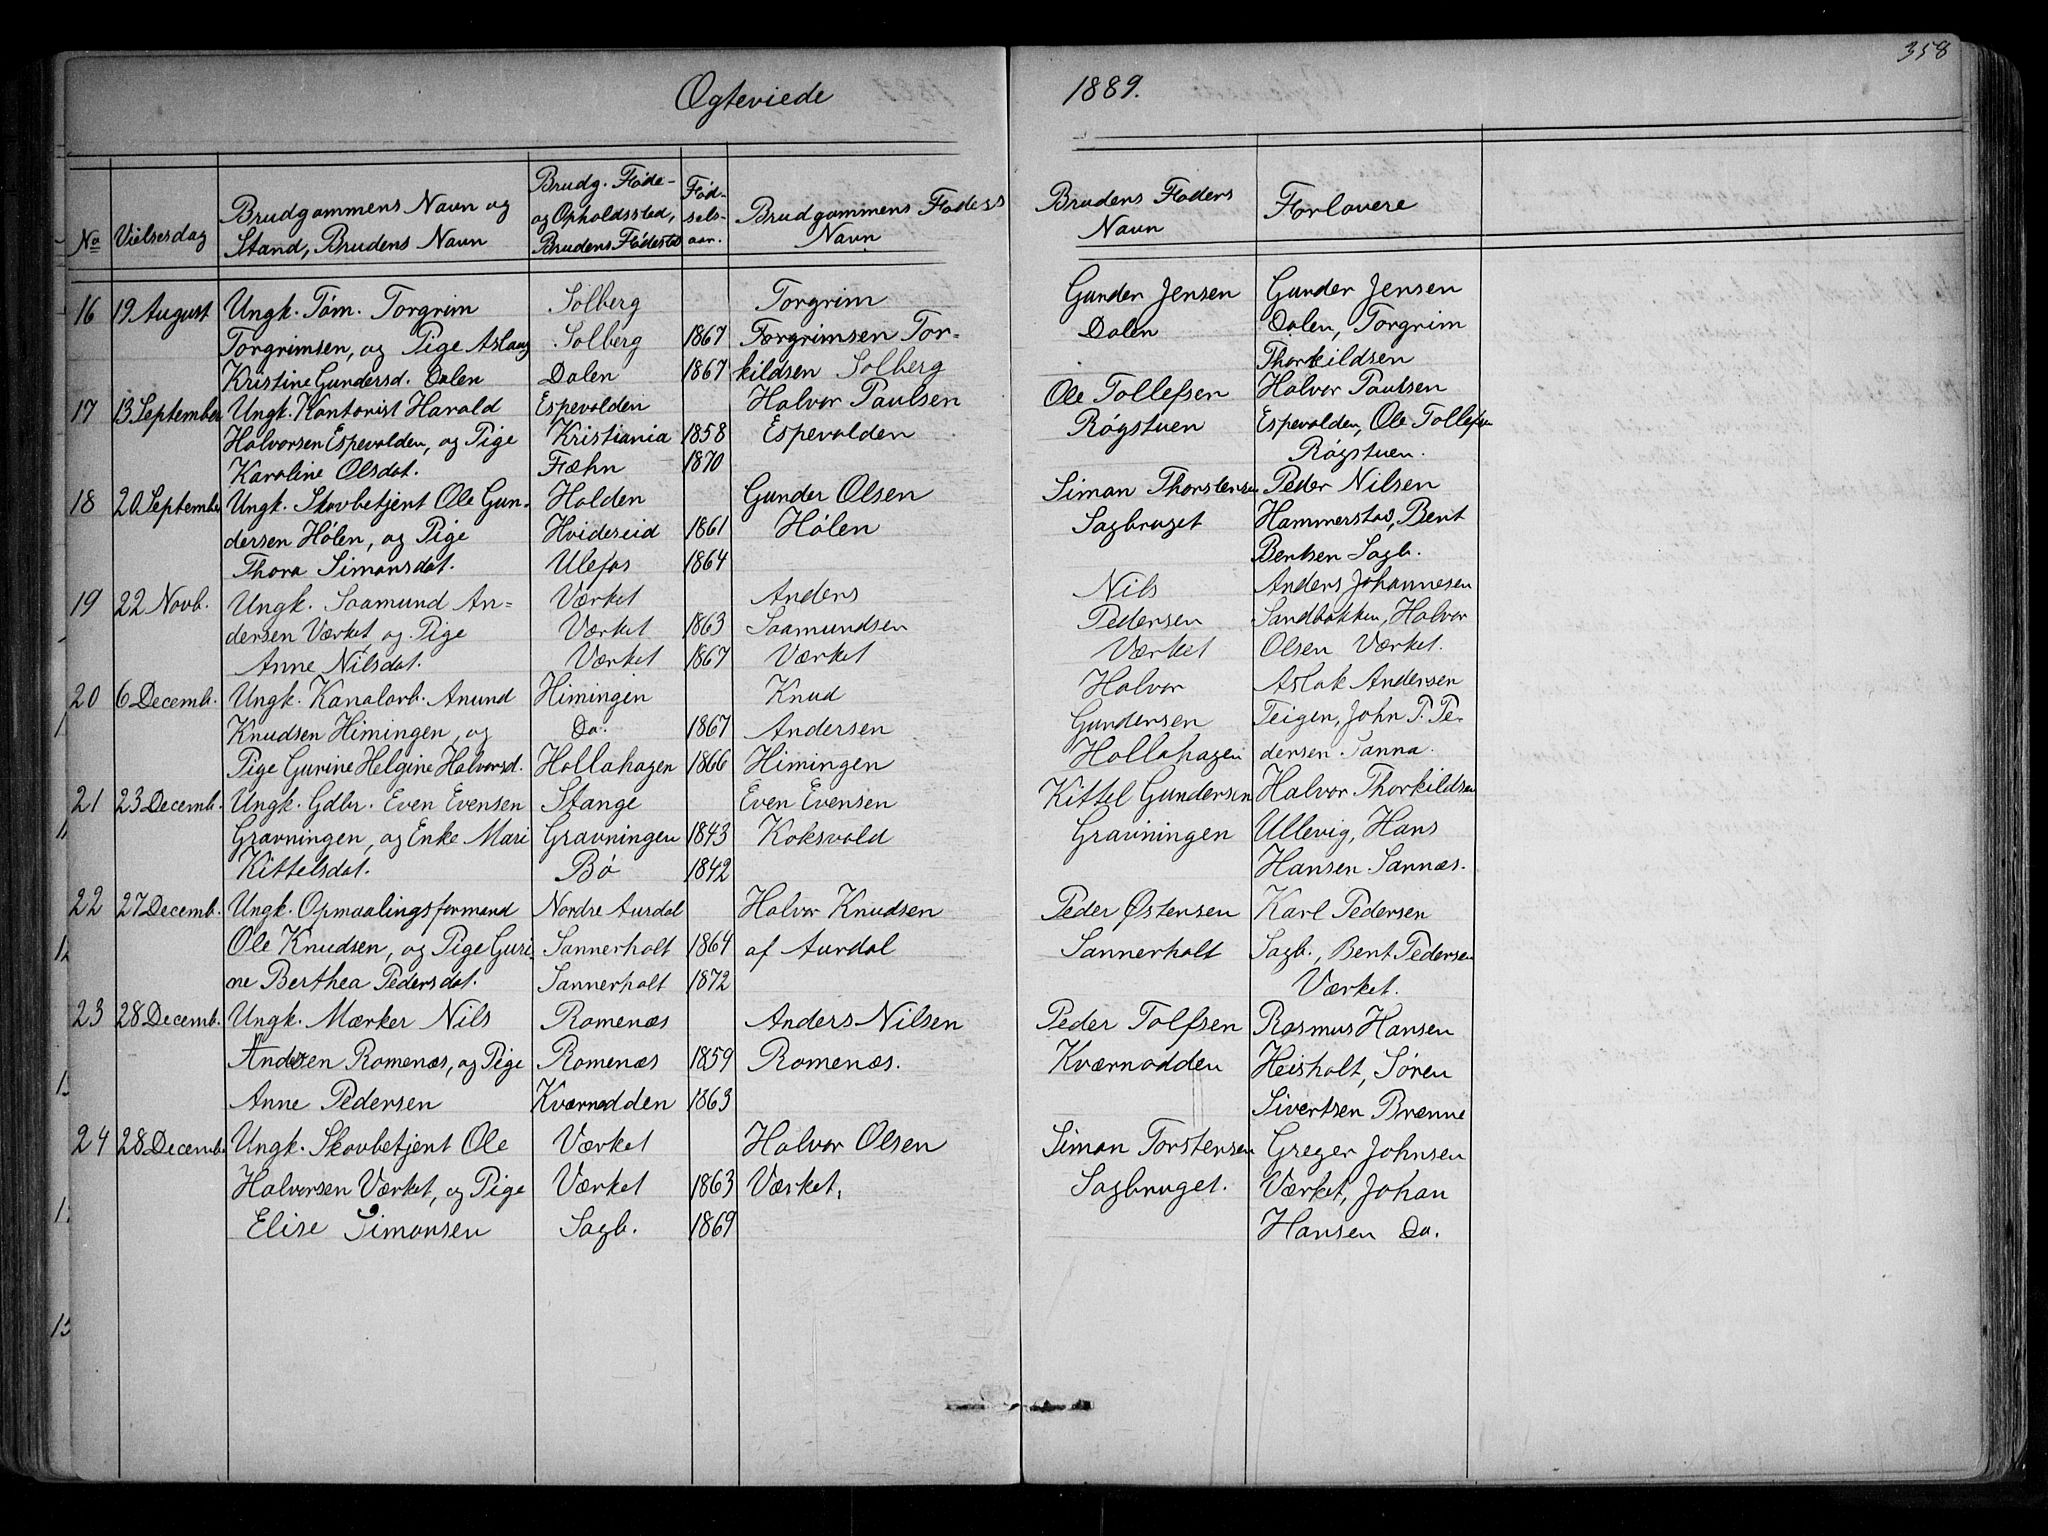 358
Ogteviede 1889.
No Vielsesdag Brudgommens Navn og Stand, Brudens Navn Brudg. Føde- og Opholdssted, Brudens Fødested Fød-sels-aar. Brudgommens Faders Navn Brudens Faders Navn Forlovere
16 19 August Ungk. Tøm. Torgrim Solberg Torgrim Gunder Jensen Gunder Jensen
Torgrimsen, og Pige Aslaug Solberg 1867 Torgrimsen Tor- Dalen Dalen, Torgrim
Kristine Gundersd. Dalen Dalen 1867 kildsen Solberg Thorkildsen
17 13 September Ungk. Kontorist Harald Espevalden Halvor Paulsen Ole Tollefsen Halvor Paulsen
Halvorsen Espevalden, og Pige Kristiania 1858 Espevalden Røgstuen Espevalden, Ole Tollefsen
Karoline Olsdat. Fæhn 1870 Røgstuen.
18 20 September Ungk. Skovbetjent Ole Gun- Holden Gunder Olsen Simon Thorstensen Peder Nilsen
dersen Hølen, og Pige Hvideseid 1861 Hølen Sagbruget Hammerstad, Bent
Thora Simonsdat. Ulefos 1864 Bentsen Sagb.
19 22 Novb. Ungk. Saamund An= Værket Anders Nils Anders Johannesen
dersen Værket og Pige Værket 1863 Saamundsen Pedersen Sandbakken, Halvor
Anne Nilsdat. Værket 1867 Værket Værket Olsen Værket.
20 6 Decemb. Ungk. Kanalarb. Anund Himingen Knud Halvor Aslak Andersen
Knudsen Himingen, og Do. 1867 Andersen Gundersen Teigen, John P. Pe-
Pige Gurine Helgine Halvorsd. Hollahagen 1866 Himingen Hollahagen dersen Tanna.
21 23 Decemb. Ungk. Gdbr. Even Evensen Stange Even Evensen Kittel Gundersen Halvor Thorkildsen
Gravningen, og Enke Mari Gravningen 1843 Koksvold Gravningen Ullevig, Hans
Kittelsdat. Bø 1842 Hansen Sannæs.
22 27 Decemb. Ungk. Opmaalingsformand Nordre Aurdal Halvor Knudsen Peder Østensen Karl Pedersen
Ole Knudsen, og Pige Guri- Sannerholt 1864 af Aurdal Sannerholt Sagb., Bent Pedersen
ne Berthea Pedersdat. Sannerholt 1872 Værket.
23 28 Decemb. Ungk. Mærker Nils Romenæs Anders Nilsen Peder Tolfsen Rasmus Hansen
Andersen Romenæs, og Pige Romenæs 1859 Romenæs. Kværnodden Heisholt, Søren
Anne Pedersen Kværnodden 1863 Sivertsen Brenne
24 28 Decemb Ungk. Skovbetjent Ole Værket Halvor Olsen Simon Torstensen Greger Johnsen
Halvorsen Værket, og Pige Værket 1863 Værket. Sagbruget. Værket, Johan
Elise Simonsen Sagb. 1869 Hansen Do.